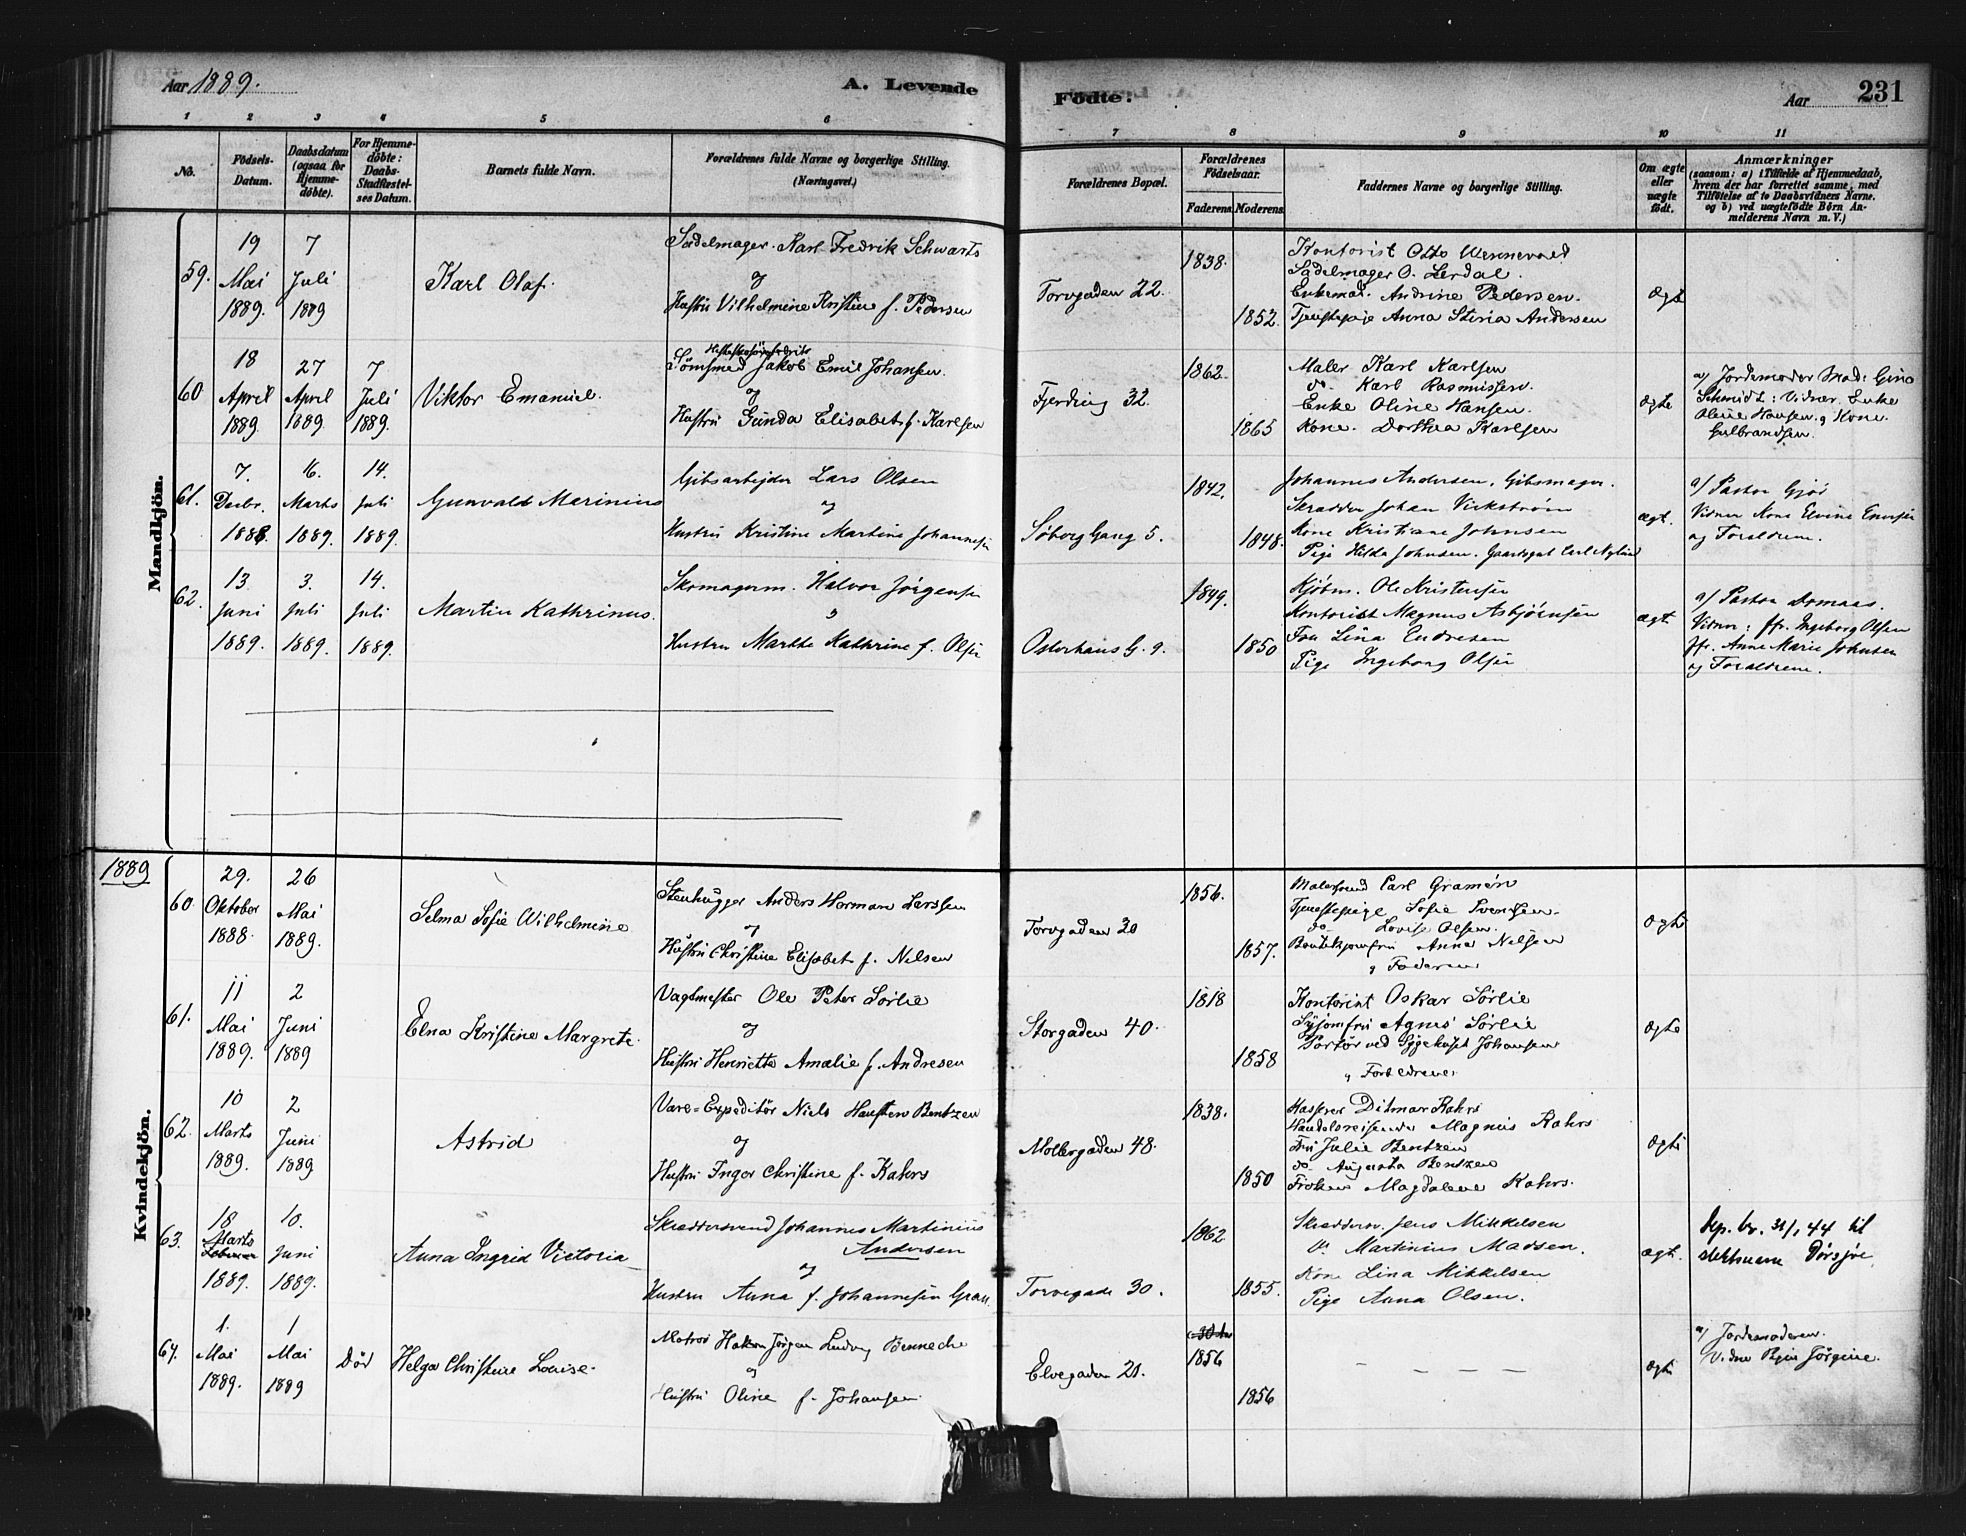 Aar 1889.
A. Levende
Födte:
Aar
231
1 2 3 4 5 6
7 8 9 10 11
No.
Födsels-Datum.
Daabsdatum (ogsaa for Hjemme-döbte).
For Hjemme-döbte: Daabs-Stadfæstel-ses Datum.
Barnets fulde Navn.
Forældrenes fulde Navne og borgerlige Stilling. (Næringsvei.)
Forældrenes Bopæl.
Forældrenes Födselsaar.
Faderens. Moderens.
Faddernes Navne og borgerlige Stilling.
Om ægte eller uægte født.
Anmærkninger
(saasom: a) i Tilfælde af Hjemmedaab,
hvem der har forrettet samme, med
Tilföielse af to Daabsvidners Navne.
og b) ved uægtefödte Börn An-
melderens Navn m. V.)
Mandkjön.
59.
19 Mai 1889.
7 Juli 1889
Karl Olaf.
Sadelmager. Karl Fredrik Schwarts
og
Hustru Vilhelmine Kristine f. Pedersen
Torvgaden 22.
1838.
1852.
Kontorist Otto Wennevold
Sadelmager O. Lerdal.
Enkemad. Andrine Pedersen.
Tjenestepige Anna Stina Andersen
Ægt
60
18 April 1889.
27 April 1889.
7 Juli 1889.
Viktor Emanuel.
Sömsmed Jakob Emil Johansen.
og
Hustru Gunda Elisabet f. Karlsen
Fjerding 32.
1862.
1865
Maler Karl Karlsen
do. Karl Rasmussen.
Enke Oline Hansen.
Kone. Dorthea Karlsen
Ægte
a) Jordemoder Mad: Gina
Schmidt: Vidner. Enke
Oline Hansen og Kone.
Gulbrandsen.
61.
7. Decbr. 1888.
16. Marts 1889.
14. Juli 1889.
Gunvald Marinius
Gibsarbejder Lars Olsen
og
Hustru Kristine Martine Johannesen
Söborg Gang 5.
1842.
1848.
Johannes Andersen, Gibsmager.
Skrædder Johan Vickström
Kone Kristiane Johnsen
Pige Hilda Johnsen. Gaardsgut Carl Nylund
ægt.
a/ Pastor Gjör
Vidner Kone Elvine Enersen
og Forældrene.
62.
13 Juni 1889.
3. Juli 1889.
14. Juli 1889.
Martin Kathrinus.
Skomagerm. Halvor Jörgensen
"
Hustru Marthe Kathrine f. Olsen
Osterhaus G. 9.
1849.
1850
Kjöbm. Ole Kristensen
Kontorist Magnus Asbjörnsen
Fru Lina Endresen
Pige Ingeborg Olsen
ægt.
a/ Pastor Domaas.
Vidner: fr. Ingeborg Olsen
fr. Anne Marie Johnsen
og Forældrene.
1889
Kvindekjön.
60.
29. Oktober 1888.
26 Mai 1889.
Selma Sofie Wilhelmine
Stenhugger Anders Herman Larssen
og
Hustru Christine Elisabet f. Nelsen
Torvgaden 30
1856.
1857.
Malersvend Carl Gramén
Tjenestepige Sofie Svensen.
do Lovise Olsen.
Butikjomfru Anna Nelsen
og Faderen
Ægte
61.
11 Mai 1889.
2 Juni 1889
Elna Kristine Margrete.
Vagtmester Ole Peter Sörlie
og
Hustru Henriette Amalie f. Andresen
Storgaden 40.
1818
1858
Kontorist Oskar Sörlie
Syjomfru Agnes Sörlie
Portör ved Sygehuset Johansen
og Forældrene.
Ægte
62.
10 Marts 1889.
2 Juni 1889
Astrid
Vare-Expeditör Niels Hansteen Bentzen
og
Hustru Inger Christine f. Kahrs
Möllergaden 48.
1838.
1850
Kasserer Ditmar Kahrs
Handelsreisende Magnus Kahrs
Fru Julie Bentzen
do Augusta Bentzen
Fröken Magdalene Kahrs.
Ægte
63.
18 Marts 1889.
10. Juni 1889.
Anna Ingrid Victoria
Skræddersvend Johannes Martinius
Andersen
og
Hustru Anna f. Johannesen Gran.
Torvegade 30.
1862
1855.
Skræddersv. Jens Mikkelsen
Do Martinius Madsen.
Kone Lina Mikkelsen
Pige Anna Olsen.
ægt.
64.
1. Mai 1889.
1 Mai 1889
Död
Helga Christine Louise.
Matros Hakon Jörgen Ludvig Bennecke
og
Hustru Oline f. Johansen
Elvegaden 21.
1856
1856
– – – –
Ægte
a) Jordemoderen.
Vidne Pigen Jörgine.